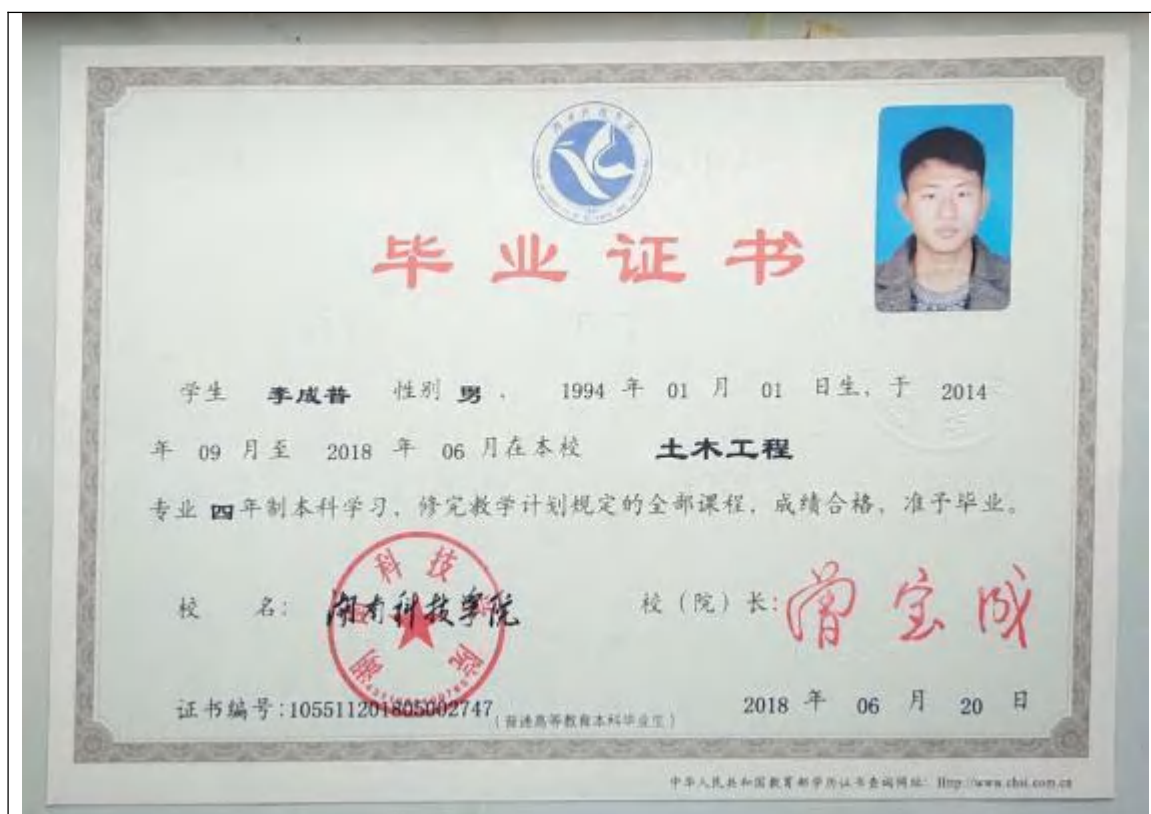 毕业证书
学生 李成普 性别 男 , 1994 年 01 月 01 日生, 于 2014
年 09 月至 2018 年 06 月在本校 土木工程
专业 四年制本科学习, 修完教学计划规定的全部课程, 成绩合格, 准予毕业。
校 名: 湖南科技学院 校(院)长: 曾宝成
湖南科技学院
证书编号:105511201805002747 (普通高等教育本科毕业生) 2018 年 06 月 20 日
中华人民共和国教育部学历证书查询网址: Http://www.chsi.com.cn